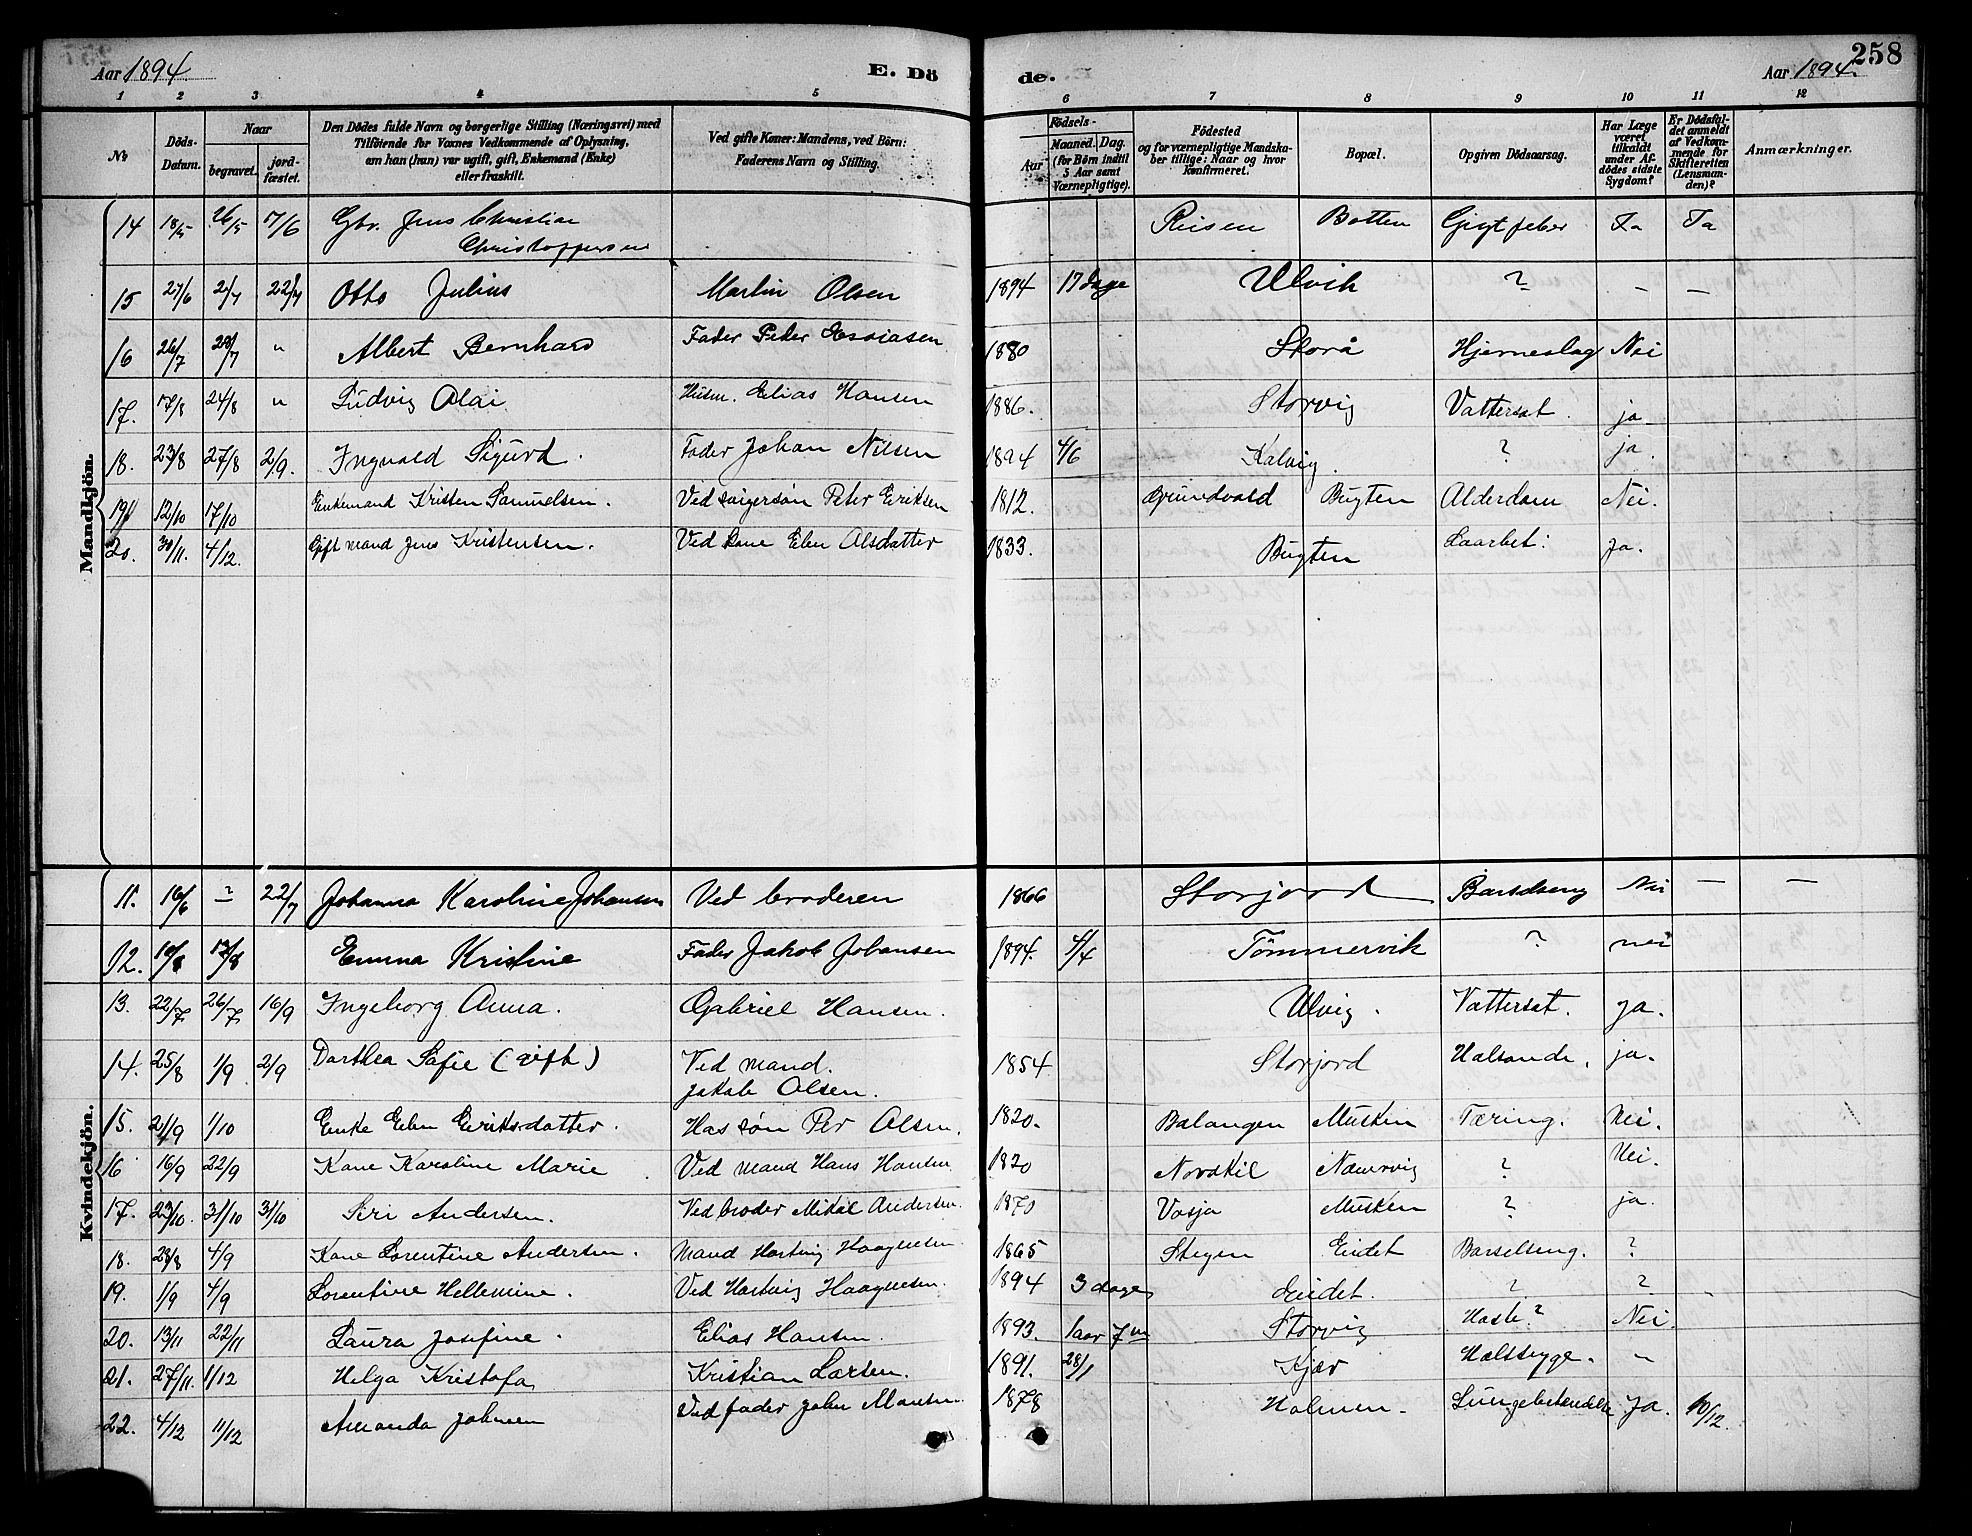 258
Aar 1894. E. Dö de. Aar 1894.
1 2 3 4 5 6 7 8 9 10 11 12
№
Döds-
Datum.
Naar
begravet.
jord-
fæstet.
Den Dödes fulde Navn og borgerlige Stilling (Næringsvei) med
Tilföiende for Voxnes Vedkommende af Oplysning,
om han (hun) var ugift, gift, Enkemand (Enke)
eller fraskilt.
Ved gifte Koner: Mandens, ved Börn:
Faderens Navn og Stilling.
Födsels-
Aar
Maaned. Dag.
(for Börn indtil
5 Aar samt
Værnepligtige).
Födested
og for værnepligtige Mandska-
ber tillige: Naar og hvor
konfirmeret.
Bopæl.
Opgiven Dödsaarsag.
Har Læge
været
tilkaldt
under Af-
dödes sidste
Sygdom?
Er Dödsfal-
det anmeldt
af Vedkom-
mende for
Skifteretten
(Lensman-
den)?
Anmærkninger.
Mandkjön.
14 18/5 26/5 7/6 Gbr. Jens Christian Reisen Botten Gigtfeber Ja Ja
Christoppersen
15 27/6 2/7 22/7 Otto Julius Martin Olsen 1894 17 dage Ulvik ? — —
16 26/7 29/7 " Albert Bernhard Fader Peder Essiasen 1880 Storå Hjerneslag Nei
17. 17/8 24/8 " Ludvig Olai Husm. Elias Hansen 1886. Storvig Vattersot. ja
18. 23/8 27/8 2/9. Ingvald Sigurd. Fader Johan Nilsen 1894 4/6 Kalvig. ? ja.
19 12/10 17/10 Enkemand Kristen Samuelsen. Ved svigersøn Peter Eriksen 1812. Grundvold Bugten Alderdom Nei.
20. 30/11. 4/12. Gift mand Jens Kristensen. Ved Kone Elen Olsdatter 1833. Bugten Ja.
Kvindekjön.
11. 16/6 ? 22/7 Johanna Karoline Johansen Ved broderen 1866 Storjord Barselseng Nei — —
12. 10/8 12/8 Emma Kristine Fader Jakob Johansen 1894. 4/4 Tömmervik ? nei
13. 22/7 26/7 16/9 Ingeborg Anna. Gabriel Hansen. Ulvig. Vattersot. ja.
14. 25/8 1/9 2/9 Dorthea Sofie (gift) Ved mand. 1854 Storjord Halsonde. ja.
Jakob Olsen.
15. 21/9 1/10 Enke Elen Eriksdatter. Hos søn Per Olsen. 1820. Balangen Musken Tæring. Nei.
16 16/9 22/9 Kone Karoline Marie Ved mand Hans Hansen 1820 Nordkil ? Nei.
17. 23/10. 31/10 31/10 Siri Andersen. Ved broder Mikal Andersen. 1870 Vasja Musken ? ja.
18. 28/8 4/9 Kone Lorentine Andersen. Mand Hartvig Haagensen 1865 Stegen Eidet Barselseng. ?
19. 1/9 4/9 Lorentine Hellemine. Ved Hartvig Haagensen. 1894 3 dage Eidet. ? ?
20. 13/11 22/11 Laura Josefine. Elias Hansen. 1893. 1 aar 7 m Storvig Hoste? Nei.
21. 27/11. 1/12 Helga Kristofa Kristian Larsen. 1891. 28/1 Kjær Halssyge. "
22. 4/12 11/12 Amanda Johnsen Ved fader John Monsen 1878 Holmen. Lungebetændelse Ja. 10/12.